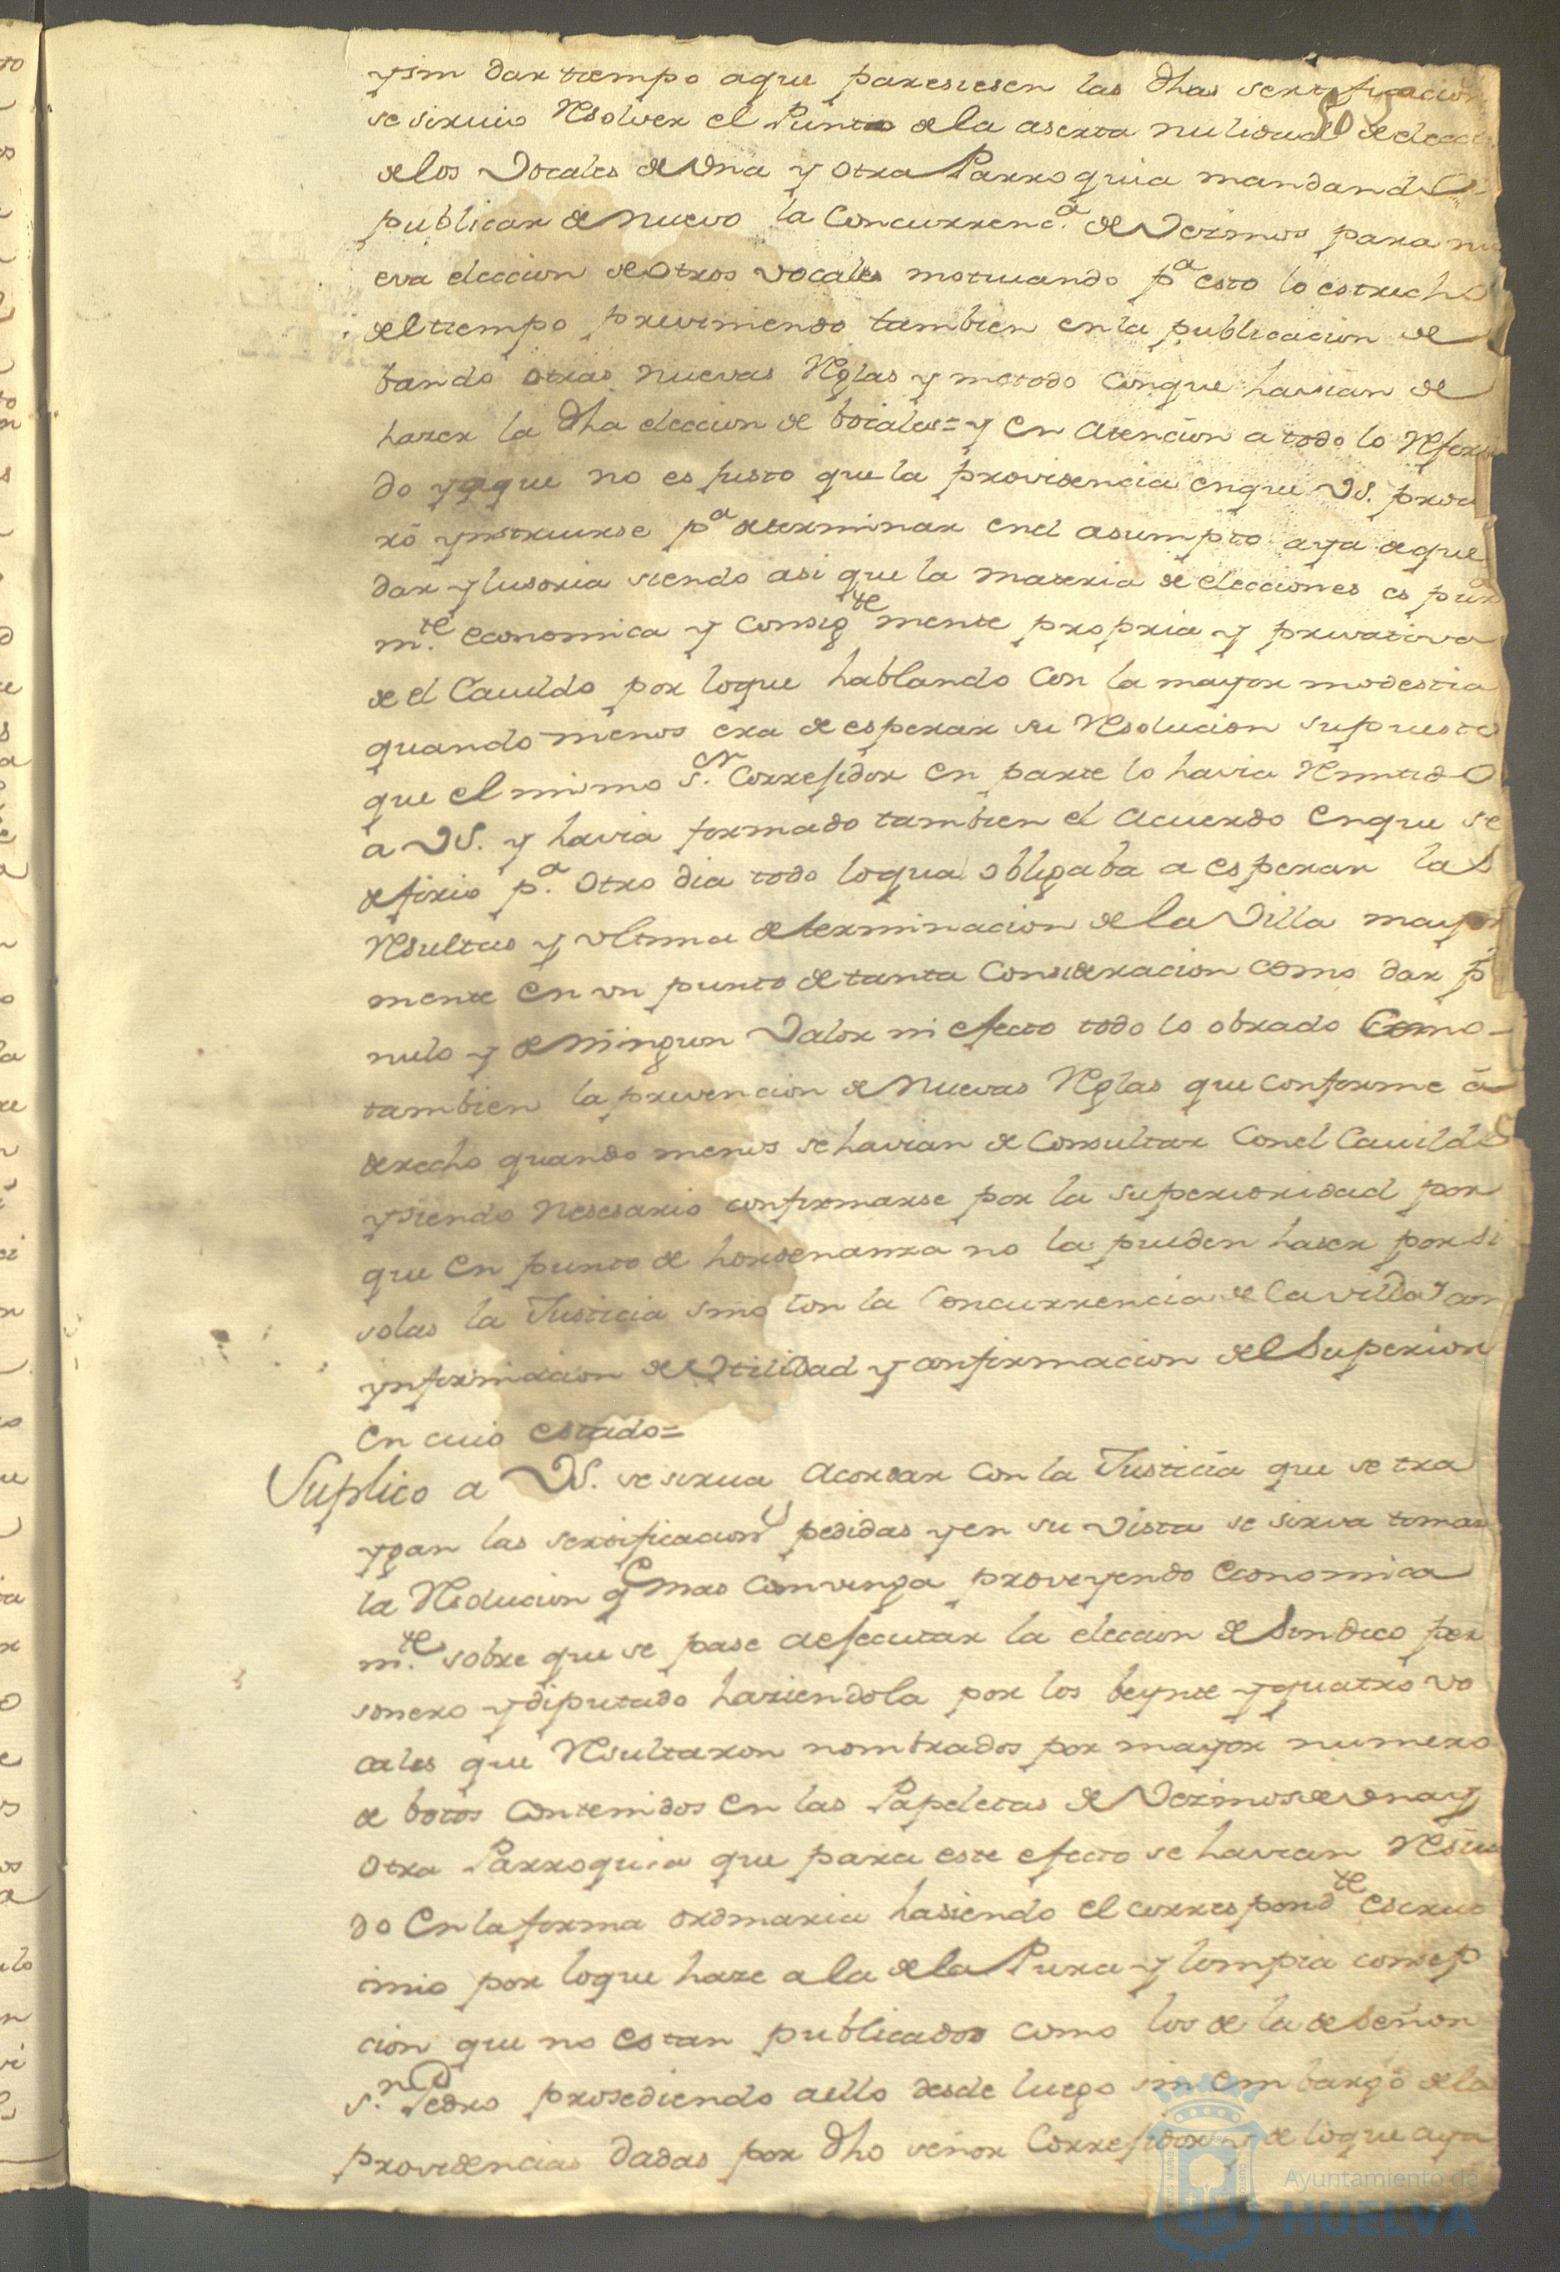 y sin dar tiempo aque paresiesen las dhas sertificacion
se siruio Resolver el Punto de la aserta nulidad de elecci
de los Vocales de Vna y otra Parroquia mandando
publicar de nuevo la Concurrenc.a de Vezinos para nu
eva eleccion de Otros vocales motiuando p.a esto lo estrecho
del tiempo previniendo tambien en la publicacion de
bando otras nuevas Reglas y metodo conque havian de
hazer la dha eleccion de bocales = y en Atencion a todo lo Referi
do y que no es justo que la providencia enque VS. procu
ró ynstruirse p.a determinar enel asumpto aya de que
dar ylusoria siendo asi que la materia de elecciones es pura
m.te economica y consig.te mente propria y privativa
de el Cauildo por loque hablando con la mayor modestia
quando menos era de esperar su Resolucion supuesto
que el mismo s.or Correjidor en parte lo havia Remitido
a VS. y havia formado tambien el Acuerdo enque se
defirio p.a otro dia todo loqual obligaba a esperar las
Resultas y vltima determinacion de la Villa mayor
mente en vn punto de tanta Consideracion como dar p.r
nulo y de ningun Valor ni efecto todo lo obrado Como
tambien la prevencion de Nuevas Reglas que conforme á
derecho quando menos se havian de Consultar Conel Cauildo
y siendo nesesario confirmarse por la superioridad por
que en punto de hordenanza no la pueden haser por si
solas la Justicia sino con la Concurrencia de Cavildo con
ynformacion de Vtilidad y confirmacion del Superior
en cuio estado=
Suplico a VS. se sirua Acordar con la Justicia que se tra
ygan las sertificacion.s pedidas y en su vista se sirva tomar
la Resolucion q mas convenga proveyendo economica
m.te sobre que se pase a ejecutar la eleccion de Sindico per
sonero y diputado haziendola por los beynte y quatro vo
cales que Resultaron nombrados por mayor numero
de botos contenidos en las Papeletas de Vezinos de vna y
otra Parroquia que para este efecto se havian Resiui
do en la forma ordinaria hasiendo el correspond.te escruti
cinio por loque haze a la de la Pura y limpia consep
cion que no estan publicados como los de la de Señor
S.n Pedro prosediendo a ello desde luego sin embargo de la
providencias dadas por dho señor Correjidor y de loque aya
Ayuntamiento de
HUELVA